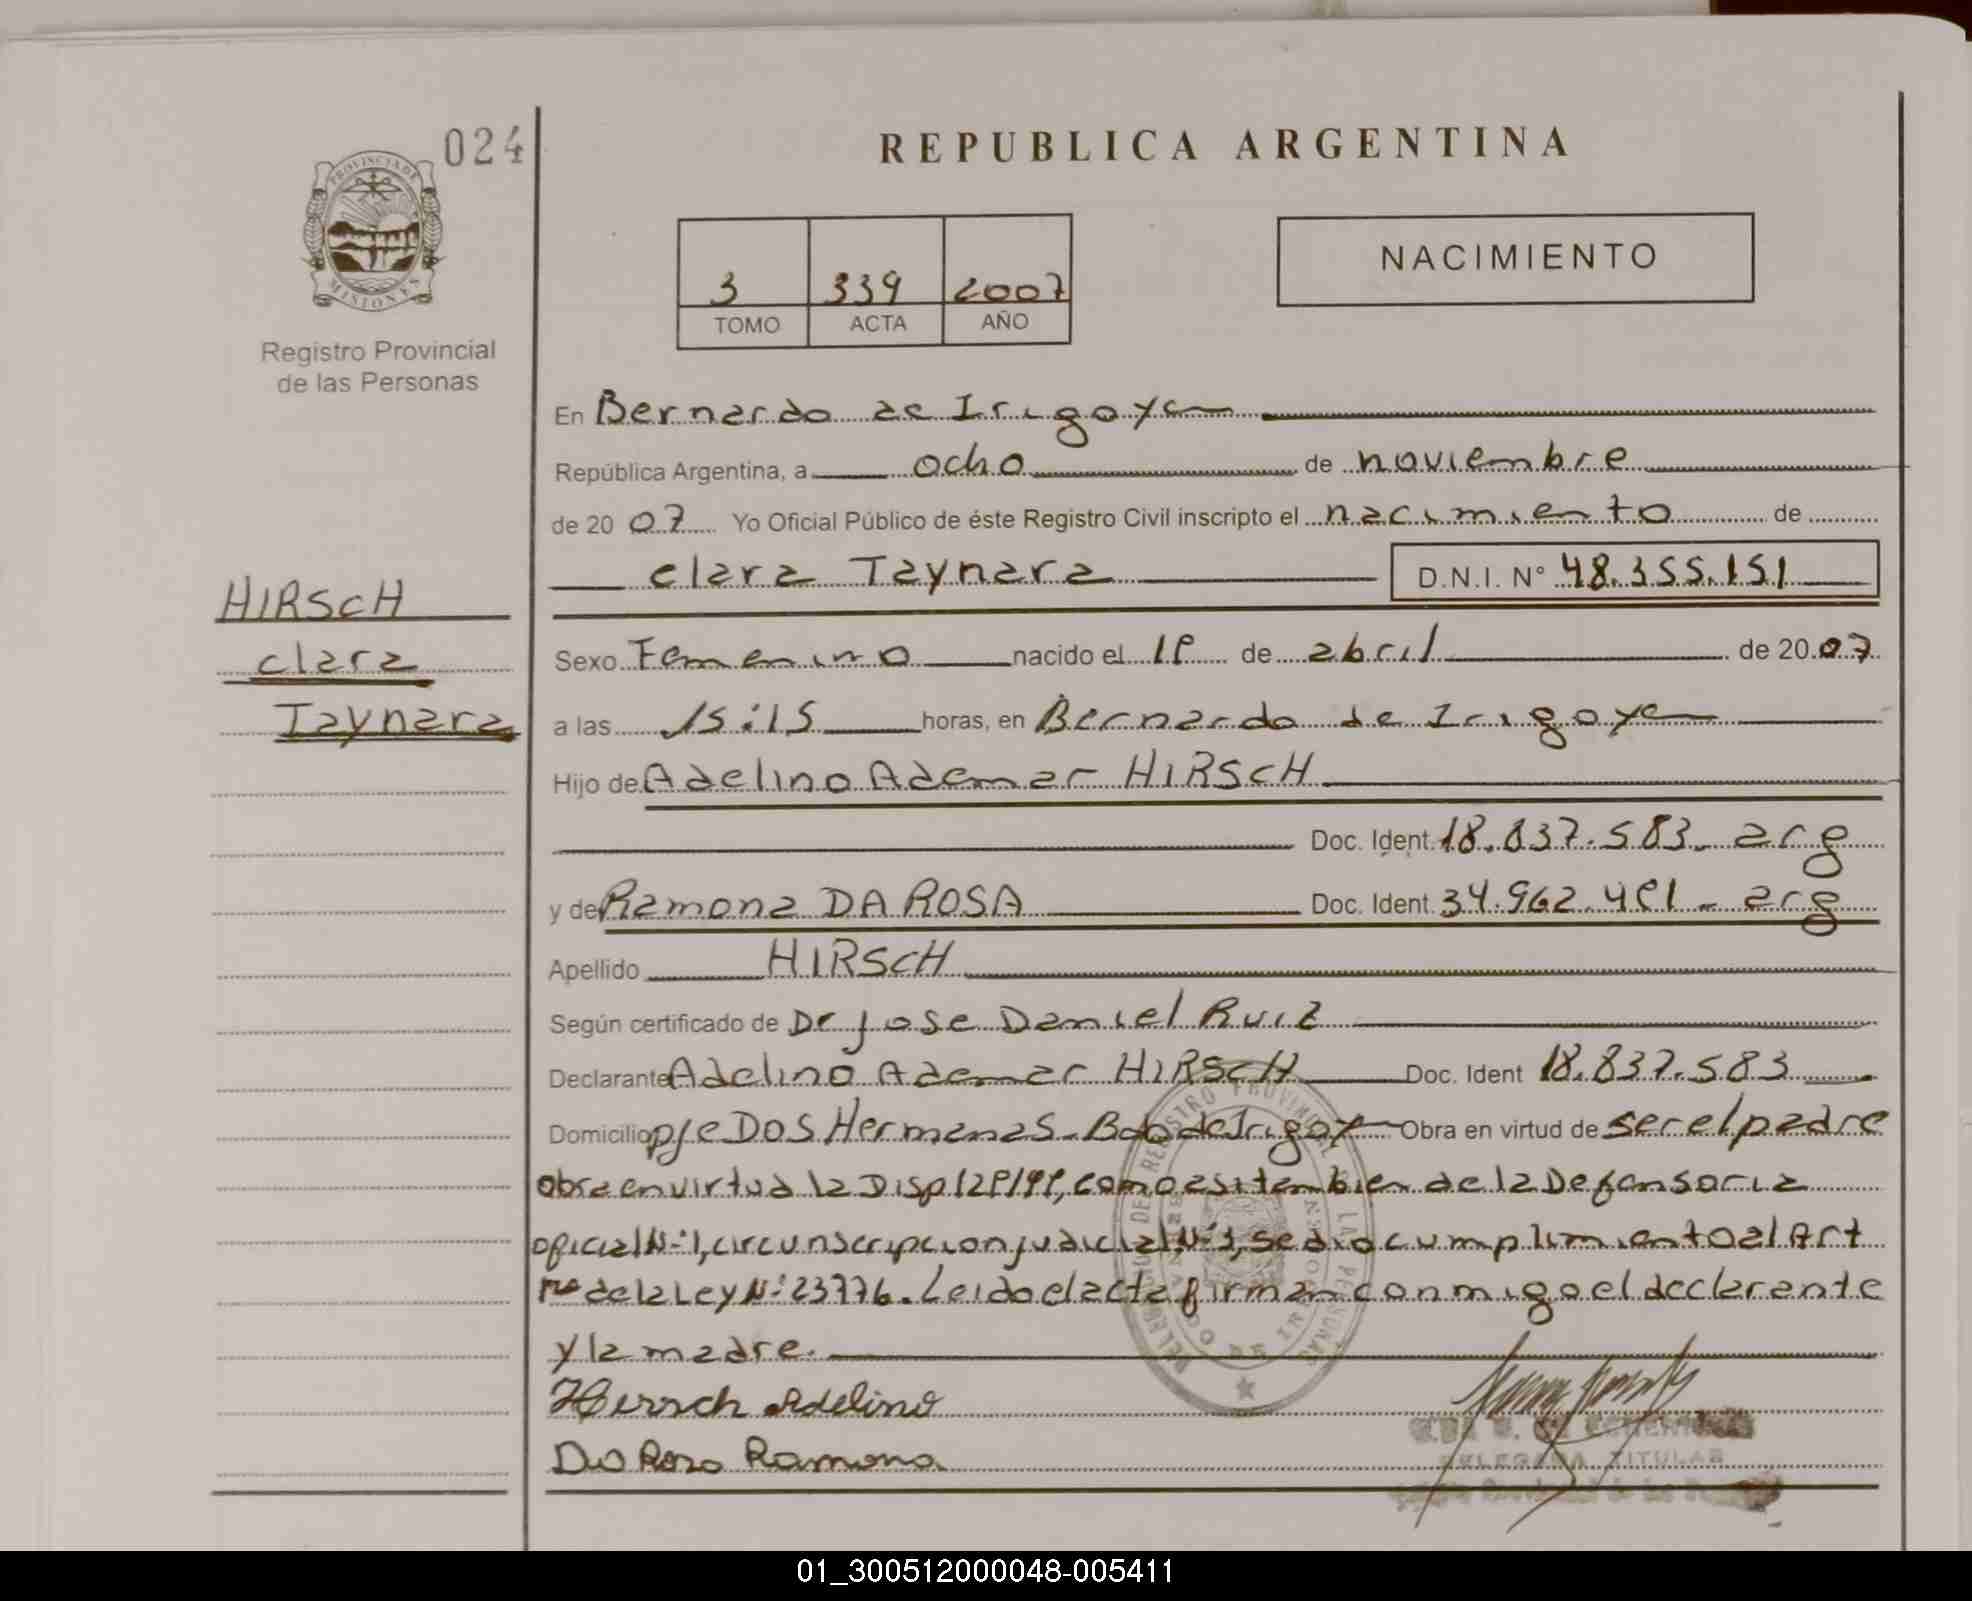 024
PROVINCIA DE
MISIONES
Registro Provincial
de las Personas
REPUBLICA ARGENTINA
3 339 2007
TOMO ACTA AÑO
NACIMIENTO
En Bernardo de Irigoyen
República Argentina, a ocho de noviembre
de 20 07 Yo Oficial Público de éste Registro Civil inscripto el nacimiento de
clara Taynara D.N.I. N° 48.355.151
HIRSCH
clara
Taynara
Sexo Femenino nacido el de abril de 20 07
a las 15:15 horas, en Bernardo de Irigoyen
Hijo de Adelino Ademar HIRSCH
Doc. Ident. 18.837.583- arg
y de Ramona DA ROSA Doc. Ident. 34.962. - arg
Apellido HIRSCH
Según certificado de Dr Jose Daniel Ruiz
Declarante Adelino Ademar HIRSCH Doc. Ident 18.837.583
Domicilio pje DOS Hermanas- Bdo de Irigoy Obra en virtud de ser el padre
obra en virtud la Disp como asi tambien de la Defensoria
oficial N:1, circunscripcion judicial se dio cumplimiento al Art
de la Ley N: 23776. Leido el acta firman conmigo el declarante
y la madre.
Hirsch Adelino
Da Rosa Ramona
DELEGADA TITULAR
01_300512000048-005411